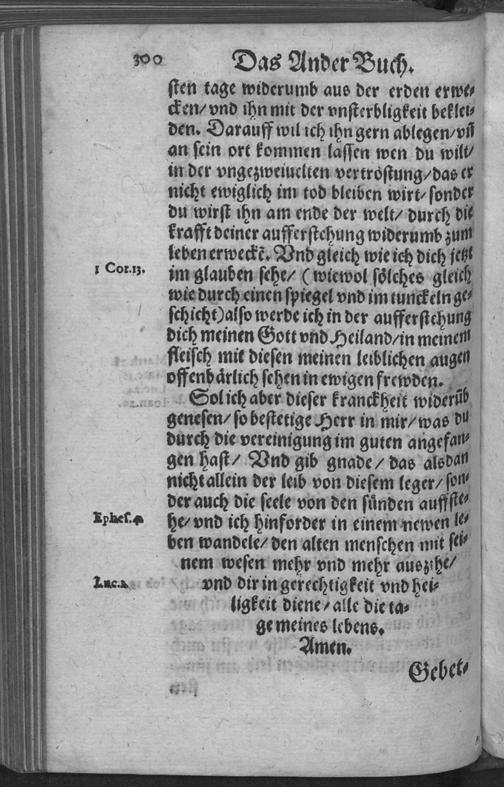 300 Das Ander Buch.
sten tage widerumb aus der erden erwe⸗
cken/ vnd ihn mit der vnsterbligkeit beklei⸗
den. Darauff wil ich ihn gern ablegen/ vñ
an sein ort kommen lassen wen du wilt/
in der vngezweiuelten vertröstung/ das er
nicht ewiglich im tod bleiben wirt/ sonder
du wirst ihn am ende der welt/ durch die
krafft deiner aufferstehung widerumb zum
leben erweckē. Vnd gleich wie ich dich jetzt
1 Cor.13. im glauben sehe/ (wiewol sölches gleich
wie durch einen spiegel vnd im tunckeln ge⸗
schicht) also werde ich in der aufferstehung
dich meinen Gott vnd Heiland/ in meinem
fleisch mit diesen meinen leiblichen augen
offenbärlich sehen in ewigen frewden.
Sol ich aber dieser kranckheit widerūb
genesen/ so bestetige Herr in mir/ was du
durch die vereinigung im guten angefan⸗
gen hast/ Vnd gib gnade/ das alsdan
nicht allein der leib von diesem leger/ son⸗
der auch die seele von den sünden auffste⸗
Ephes.4 he/ vnd ich hinforder in einem newen le⸗
ben wandele/ den alten menschen mit sei⸗
nem wesen mehr vnd mehr ausziehe/
Luc.1. vnd dir in gerechtigkeit vnd hei⸗
ligkeit diene/ alle die ta⸗
ge meines lebens.
Amen.
Gebet⸗